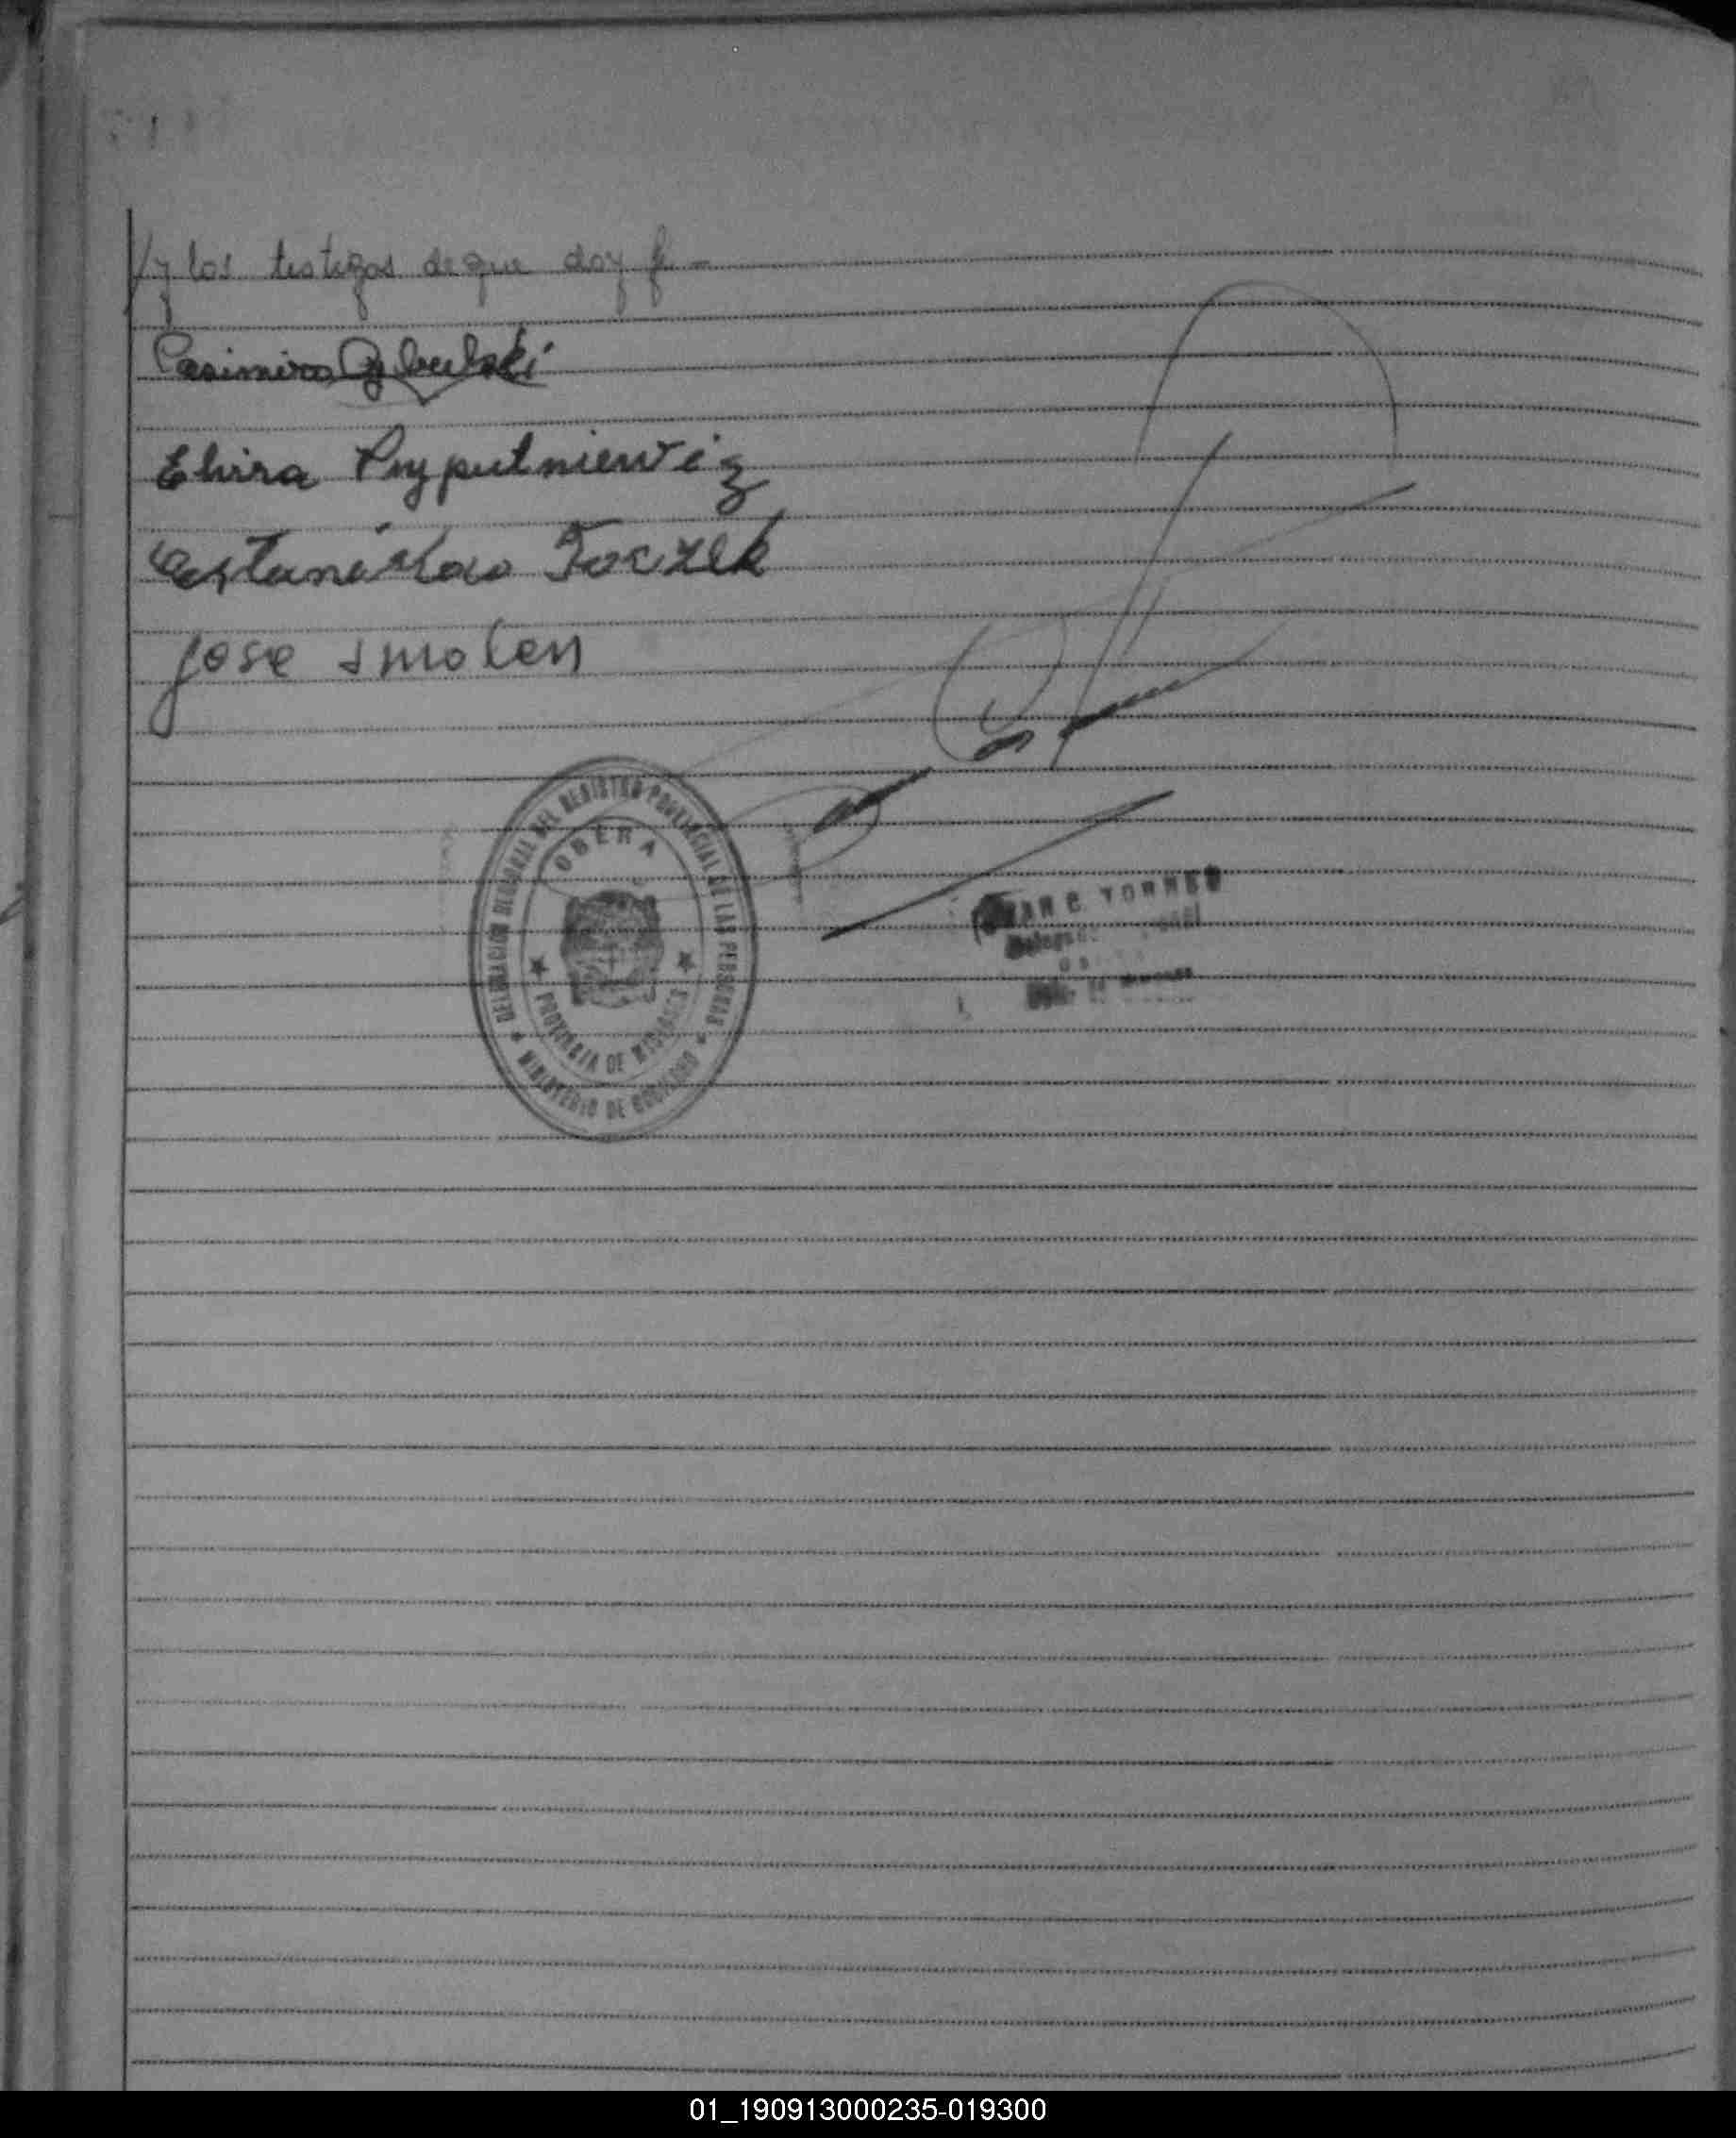 //y los testigos de que doy fe. -
Casimiro Cybulski
Elvira Przyputniewiz
Estanislao Toczek
Jose Smolen
DELEGACION REGIONAL DEL REGISTRO PROVINCIAL DE LAS PERSONAS
OBERA
PROVINCIA DE MISIONES
MINISTERIO DE GOBIERNO
C. TORRES
01_190913000235-019300